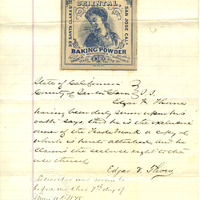 ORIENTAL
30 SANTA CLARA ST.
SAN JOSE CAL.
BAKING POWDER
State of California }
County of Santa Clara } S.S.
Edgar
having been duly sworn upon his
oath says that he is the exclusive
owner of the Trade Mark a copy of
which is hereto attached and he
claims the exclusive right to the
use thereof
Edgar
Subscribed and sworn to
before me this 7th day of